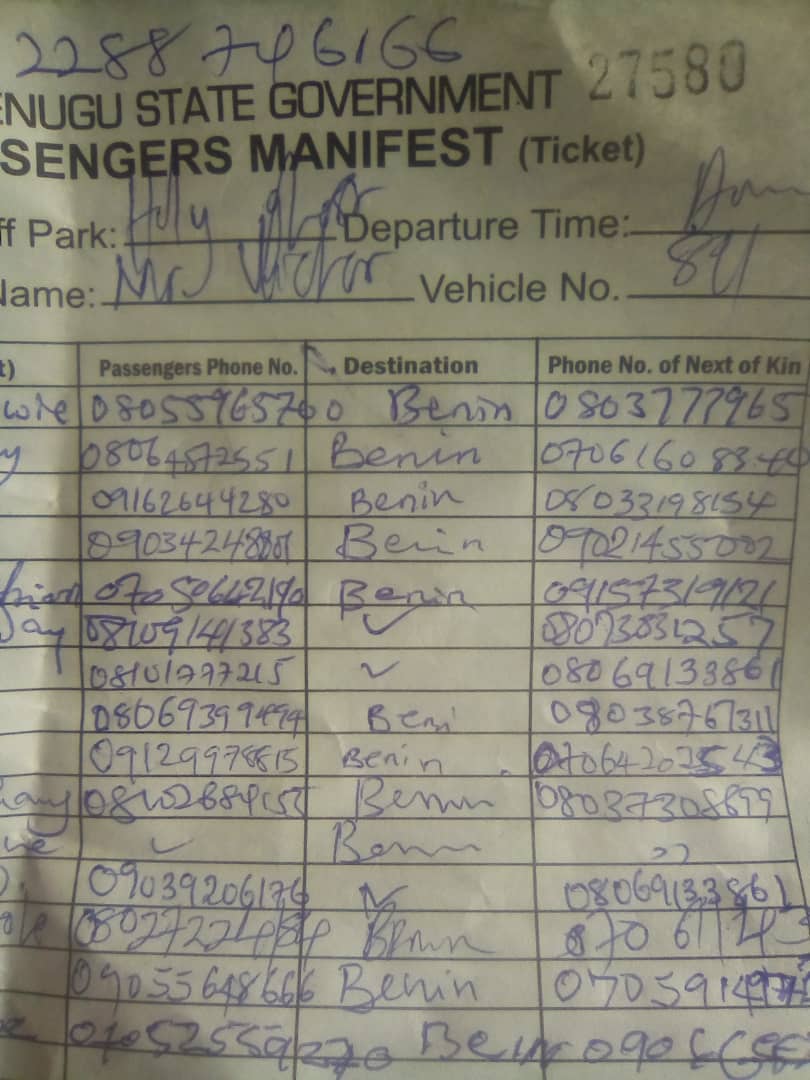 2288746166
ENUGU STATE GOVERNMENT 27580
SENGERS MANIFEST (Ticket)
ff Park: Holy Departure Time:
Name: Mr. Victor Vehicle No. 891
t) Passengers Phone No. Destination Phone No. of Next of Kin
08055965760 0 Benin 0803777965
y 08064572551 Benin
09162644280 Benin 08033198154
Benin 09021455002
07050642190 Benin 09157319121
Day 08109141383 ✓ 08073031257
08101777215 ✓ 08069133861
08069399494 Beni 08038767311
09129978815 Benin 07064202543
Benin 08037308899
✓ Benin ,,
09039206176 ✓ 08069133861
0802722484 Benin
09055648666 Benin
Benin